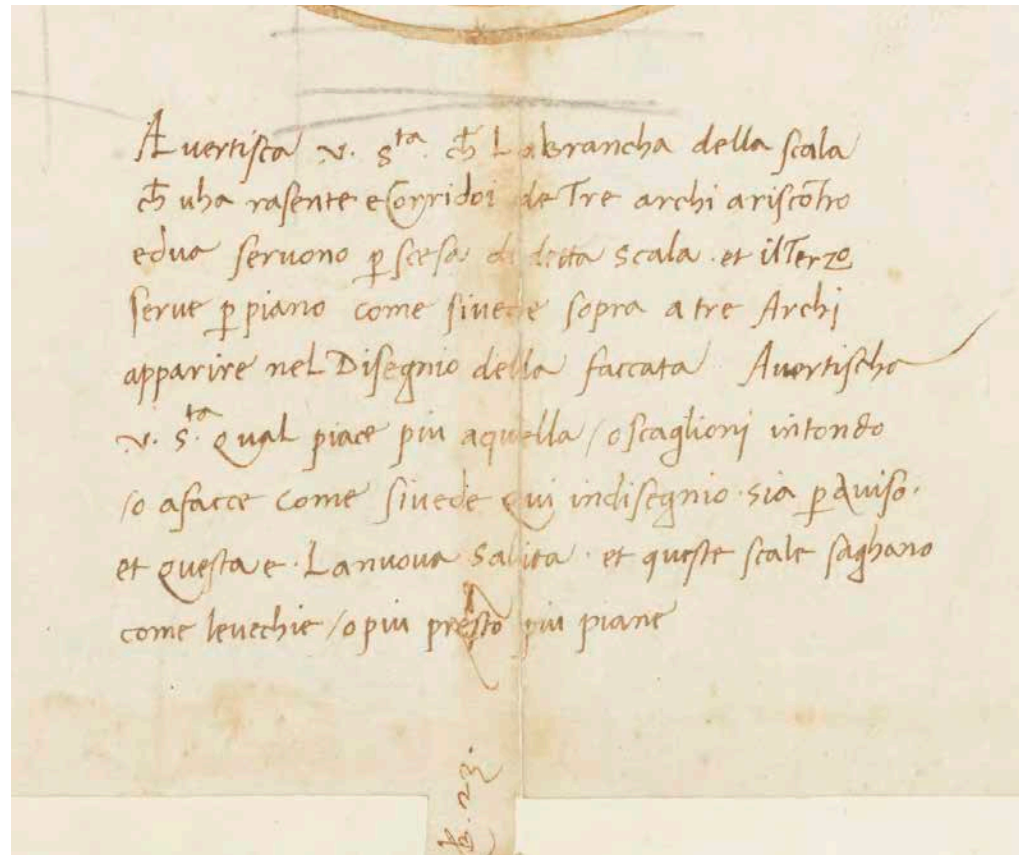 Avertisca v. S.ta ch̄ La Brancha della scala
ch̄ vha rasente e Corridoi de Tre archi ariscōtro
edua servono p̱ scesa di detta scala · et il Terzo
serve p̱ piano come sivede sopra a tre Archi
apparire nel Disegnio della faccata Avertischa
v. S.ta qual piace piu aquella / o scaglioni intondo
/o afacce come sivede qui indisegnio · sia p̱ Aviso ·
et questa e · La nuova salita · et queste scale saghano
come levechie / o piu presto piu piane